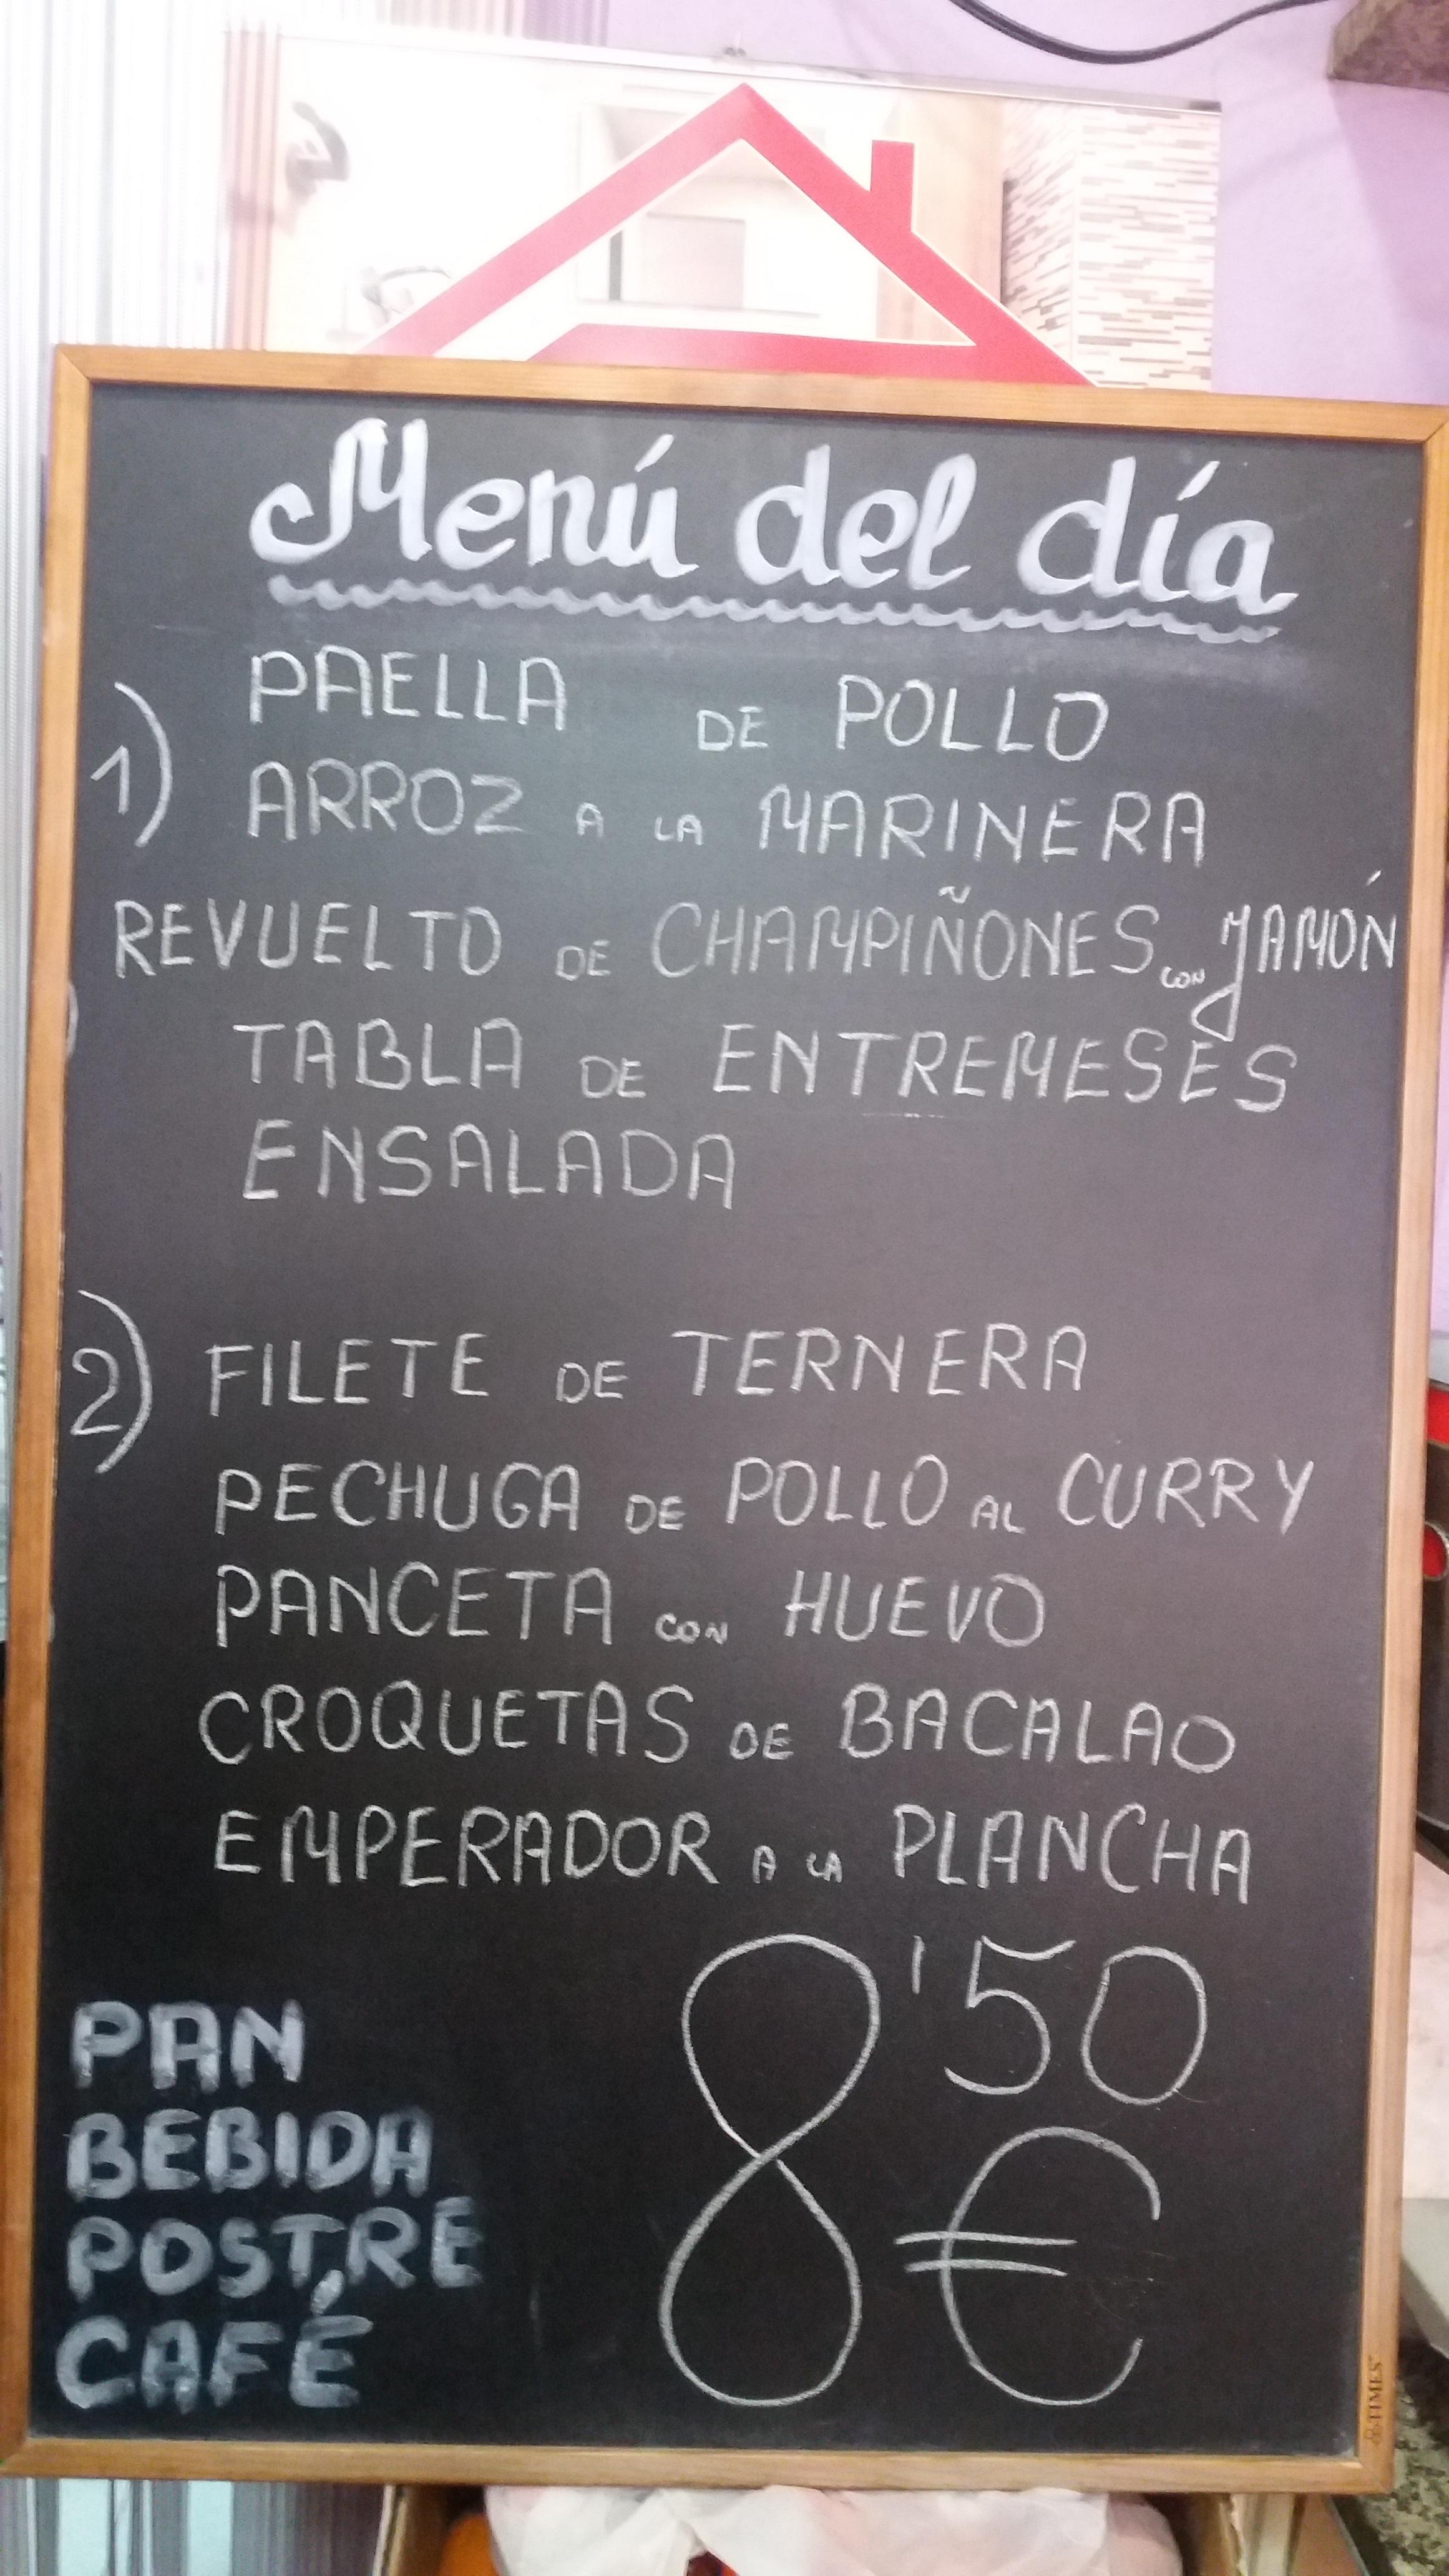 Menú del día
1) PAELLA DE POLLO
ARROZ A LA MARINERA
REVUELTO DE CHAMPIÑONES CON JAMÓN
TABLA DE ENTREMESES
ENSALADA
2) FILETE DE TERNERA
PECHUGA DE POLLO AL CURRY
PANCETA CON HUEVO
CROQUETAS DE BACALAO
EMPERADOR A LA PLANCHA
8'50 €
PAN
BEBIDA
POSTRE
CAFÉ
TIMES